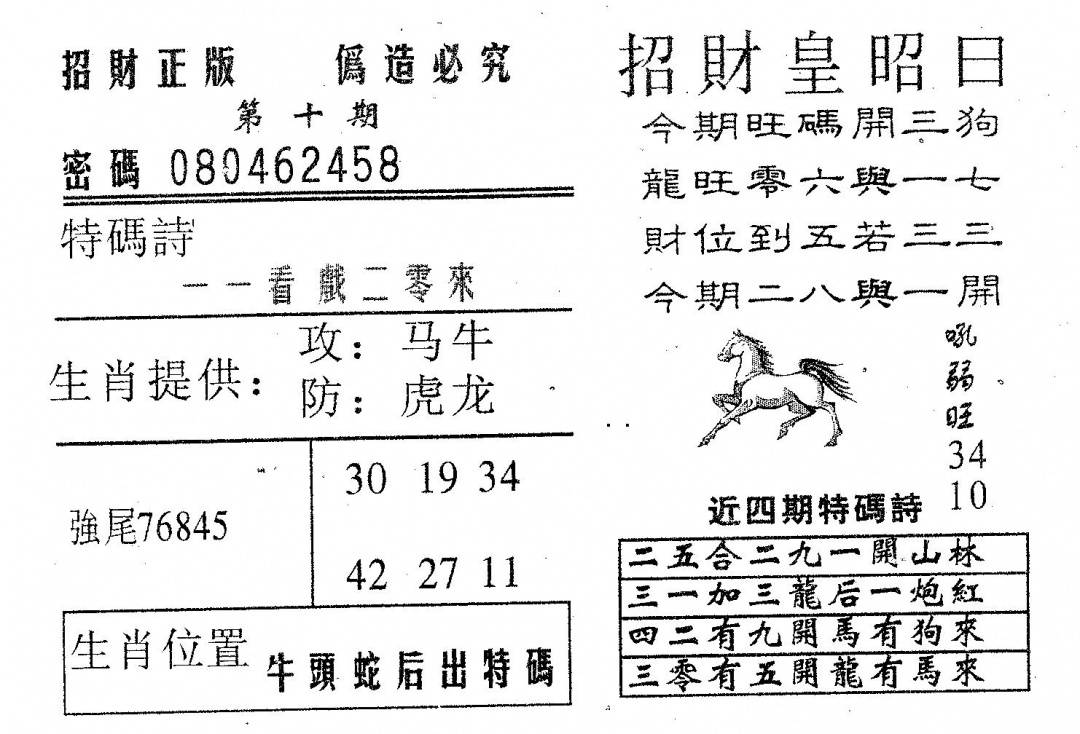 招財正版 僞造必究
第十期
密碼 080462458
特碼詩
一一看戲二零來
生肖提供：
攻：马牛
防：虎龙
強尾76845
30 19 34
42 27 11
生肖位置
牛頭蛇后出特碼
招財皇昭曰
今期旺碼開三狗
龍旺零六與一七
財位到五若三三
今期二八與一開
吼弱旺
34
10
近四期特碼詩
二五合二九一開山林
三一加三龍后一炮紅
四二有九開馬有狗來
三零有五開龍有馬來